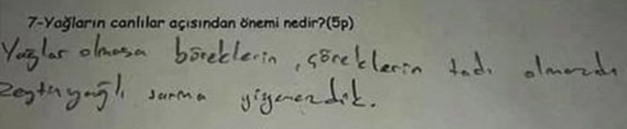 7-Yağların canlılar açısından önemi nedir?(5p)
Yağlar olmasa böreklerin, çöreklerin tadı olmazdı
Zeytinyağlı sarma yiyemezdik.